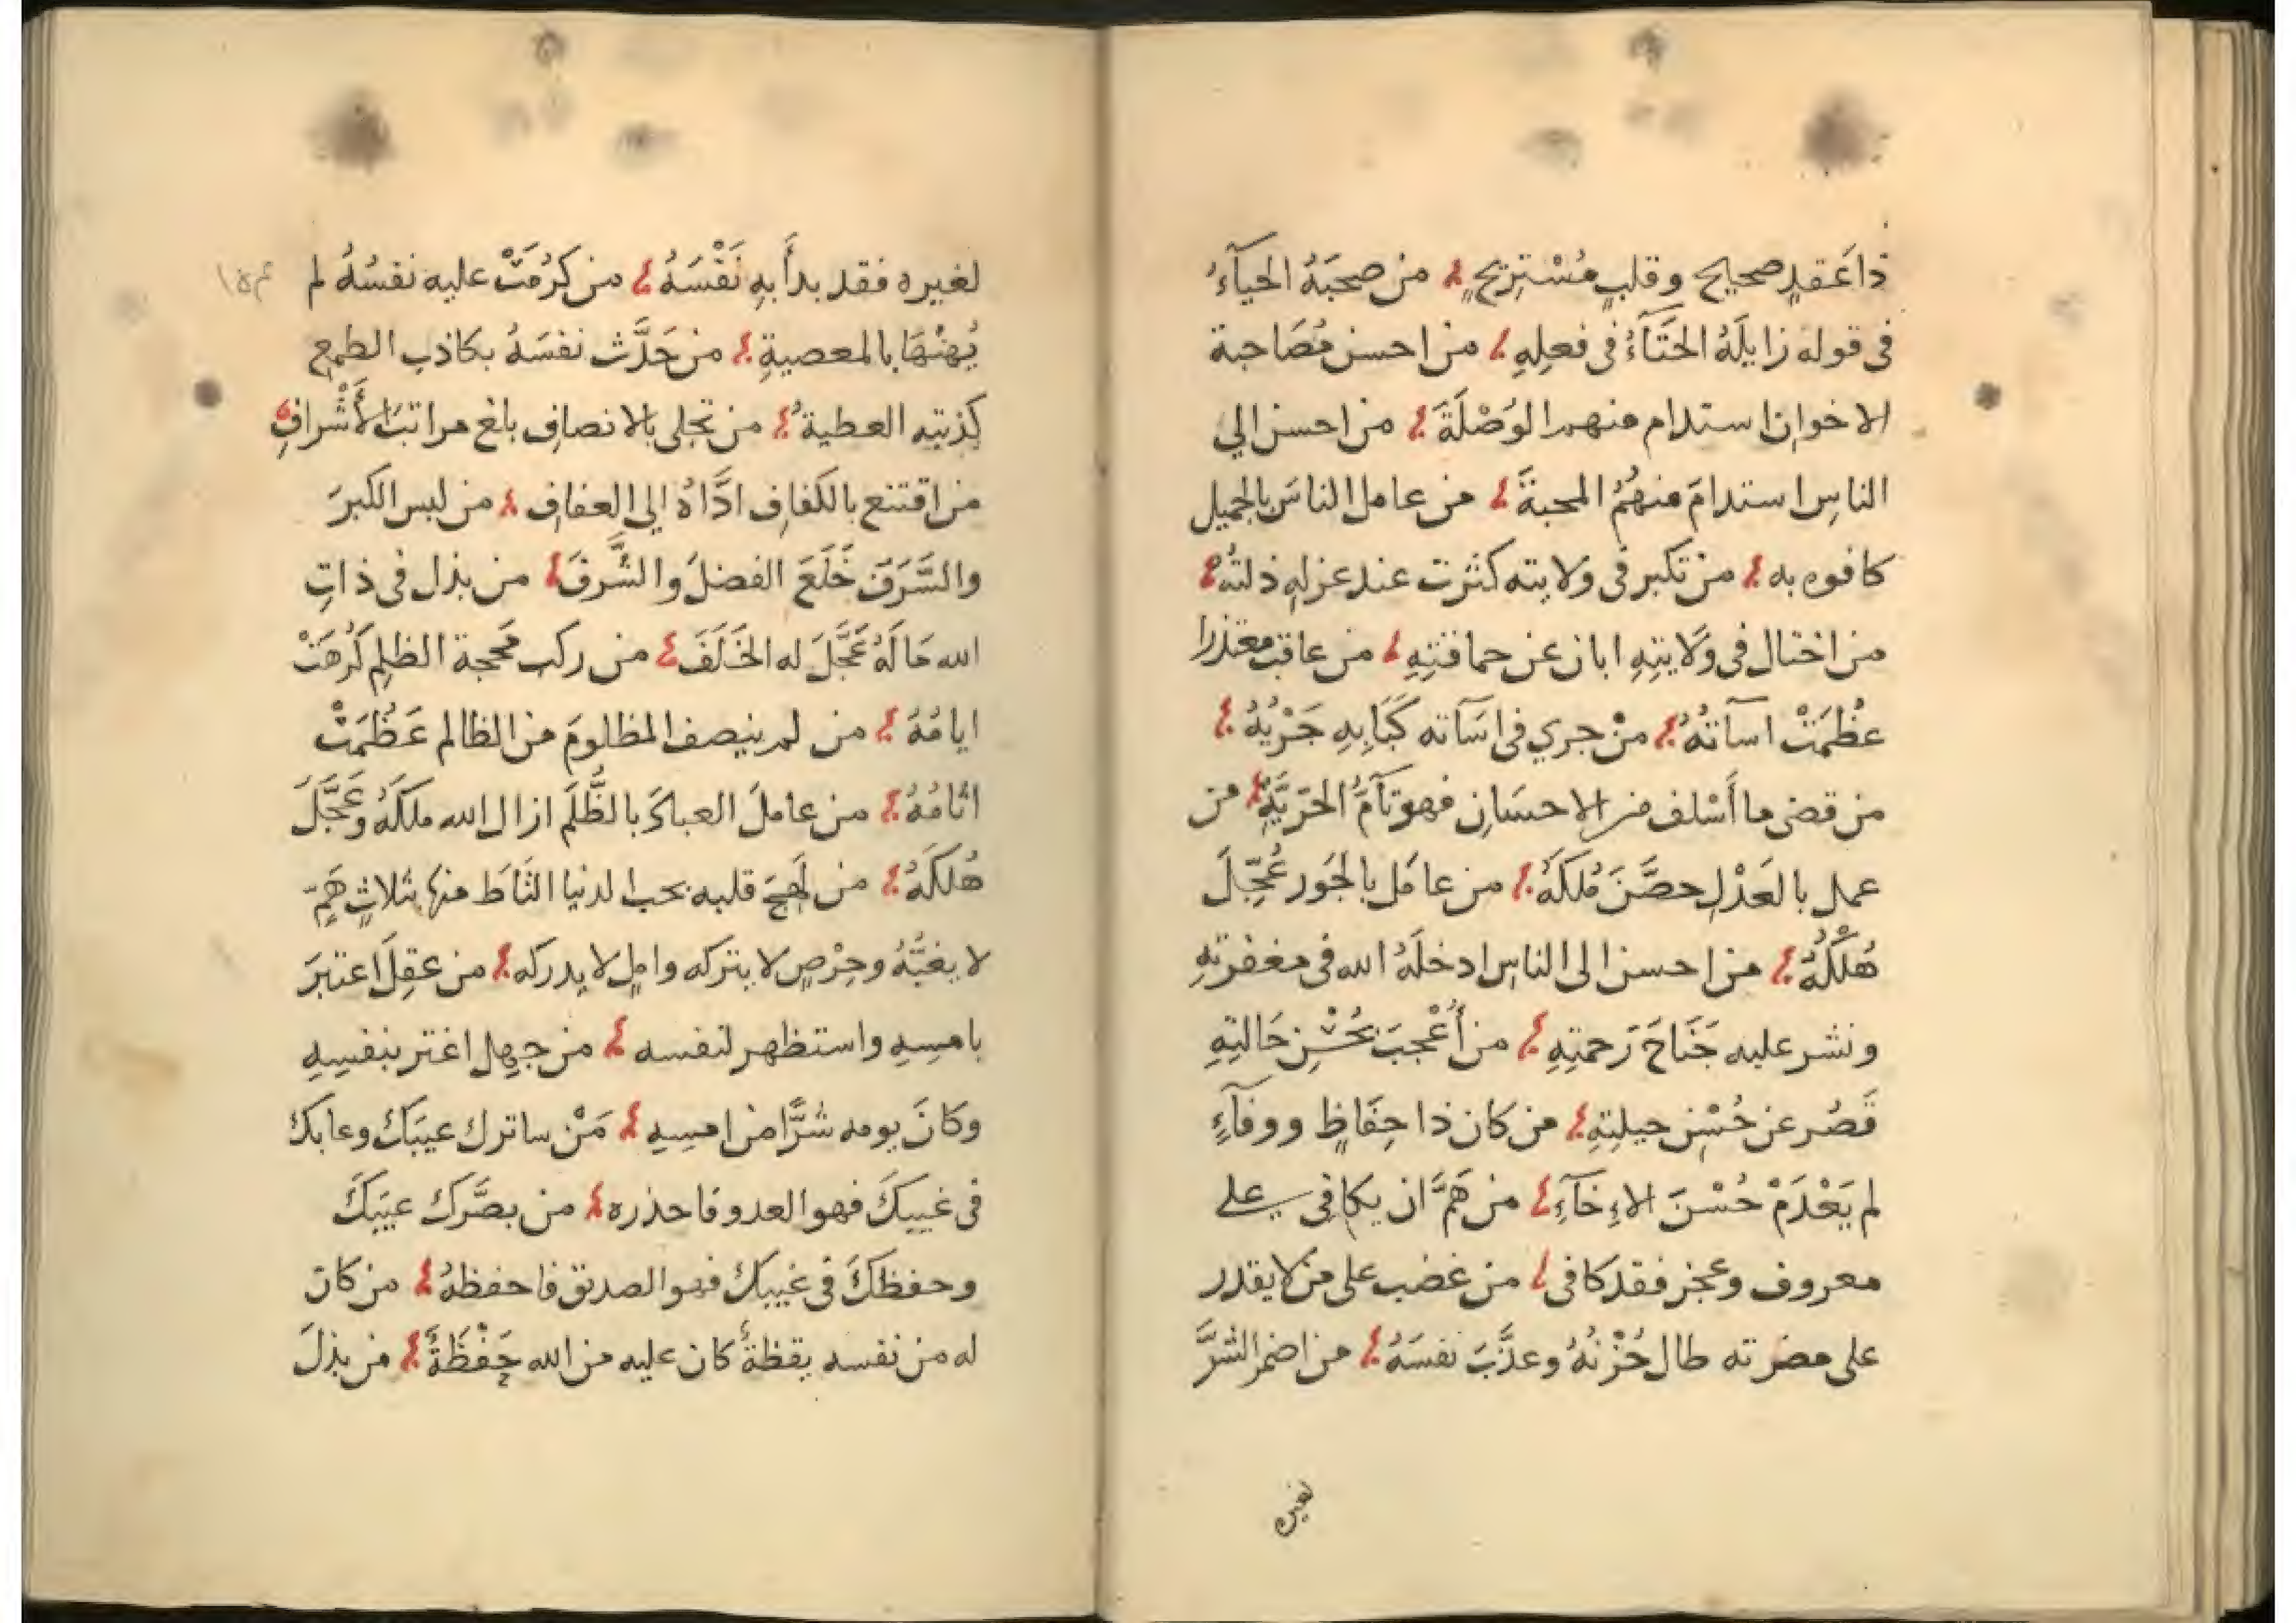 ذا عَقدٍ صحيح وقلبٍ مُسْتريحٍ من صحبَهُ الحيآءُ
فى قوله زايلَهُ الخَنَآءُ فى فعلِهِ من احسن مُصَاحبة
الاخوان استدام منهم الوُصْلَةَ من احسن الي
الناسِ استدامَ منهُمُ المحبةَ من عامل الناسَ بالجميل
كافوه به من تكبر فى ولايته كثرت عند عزلهِ ذلتُهُ
من اختال فى وَلايتِهِ ابان عن حماقتِهِ من عاقب معتذرا
عظُمَتْ اسآتهُ منْ جري فى اسَآته كَبَابِهِ جَرْيُهُ
من قضى ما أَسْلف من الاحسَان فهو تآمُّ الحَرّيَّةِ من
عمل بالعَدْلِ حصَّنَ مُلكَهُ من عامَل بالجَور عُجِّلَ
هُلْكُهُ من احسن الى الناسِ ادخلَهُ الله فى مغفرتهِ
ونشر عليه جَنَاحَ رَحمتِهِ من أُعْجبَ بحُسْنِ حَالتِهِ
قَصُر عن حُسْنِ حيلتِهِ من كان ذا حِفَاظٍ ووفآءٍ
لم يَعْدَمْ حُسْنَ الاءِخآءِ من هَمَّ ان يكافِى على
معروف وعجز فقد كافى من غضب على من لا يقدر
على مضرته طال حُزْنُهُ وعذَّبَ نفسَهُ من اضمر الشرَّ
لغيره
لغيره فقد بدأَ بهِ نَفْسَهُ من كرُمَتْ عليه نفسُهُ لم
يُهنْهَا بالمعصيةِ من حَدَّث نفسَهُ بكاذبِ الطمع
كذبته العطيةُ من تحلى بالانصافِ بلغ مراتبَ الأَشْرافِ
من اقتنع بالكفافِ ادَّاهُ الي العفافِ من لبس الكبرَ
والسَّرَفَ خَلَعَ الفضلَ والشَّرفَ من بذل فى ذاتِ
الله مَالَهُ عَجَّلَ له الخَلَفَ من ركب محجة الظلمِ كَرُهَتْ
ايامُهُ من لم ينصف المظلومَ من الظالم عَظُمَتْ
اثامُهُ من عاملَ العبادَ بالظُّلمِ ازال الله ملكَهُ وعَجَّلَ
هُلكَهُ من لَهجَ قلبه بحب الدنيا الثَاطَ منها بثلاثٍ هَمٍّ
لا يغبُّهُ وحِرْصٍ لا يتركه واملٍ لا يدركه من عقِلَ اعتبرَ
بامسِهِ واستظهر لنفسه من جهِل اغتر بنفسِهِ
وكانَ يومه شرًّا من امسِهِ مَنْ ساترك عيبَكَ وعابكَ
فى غيبِكَ فهو العدو فاحذره من بصَّركَ عيبَكَ
وحفظكَ فى غيبكَ فهو الصديق فاحفظهُ من كان
له من نفسه يقظةٌ كان عليه من الله حَفْظَةٌ من بذلَ